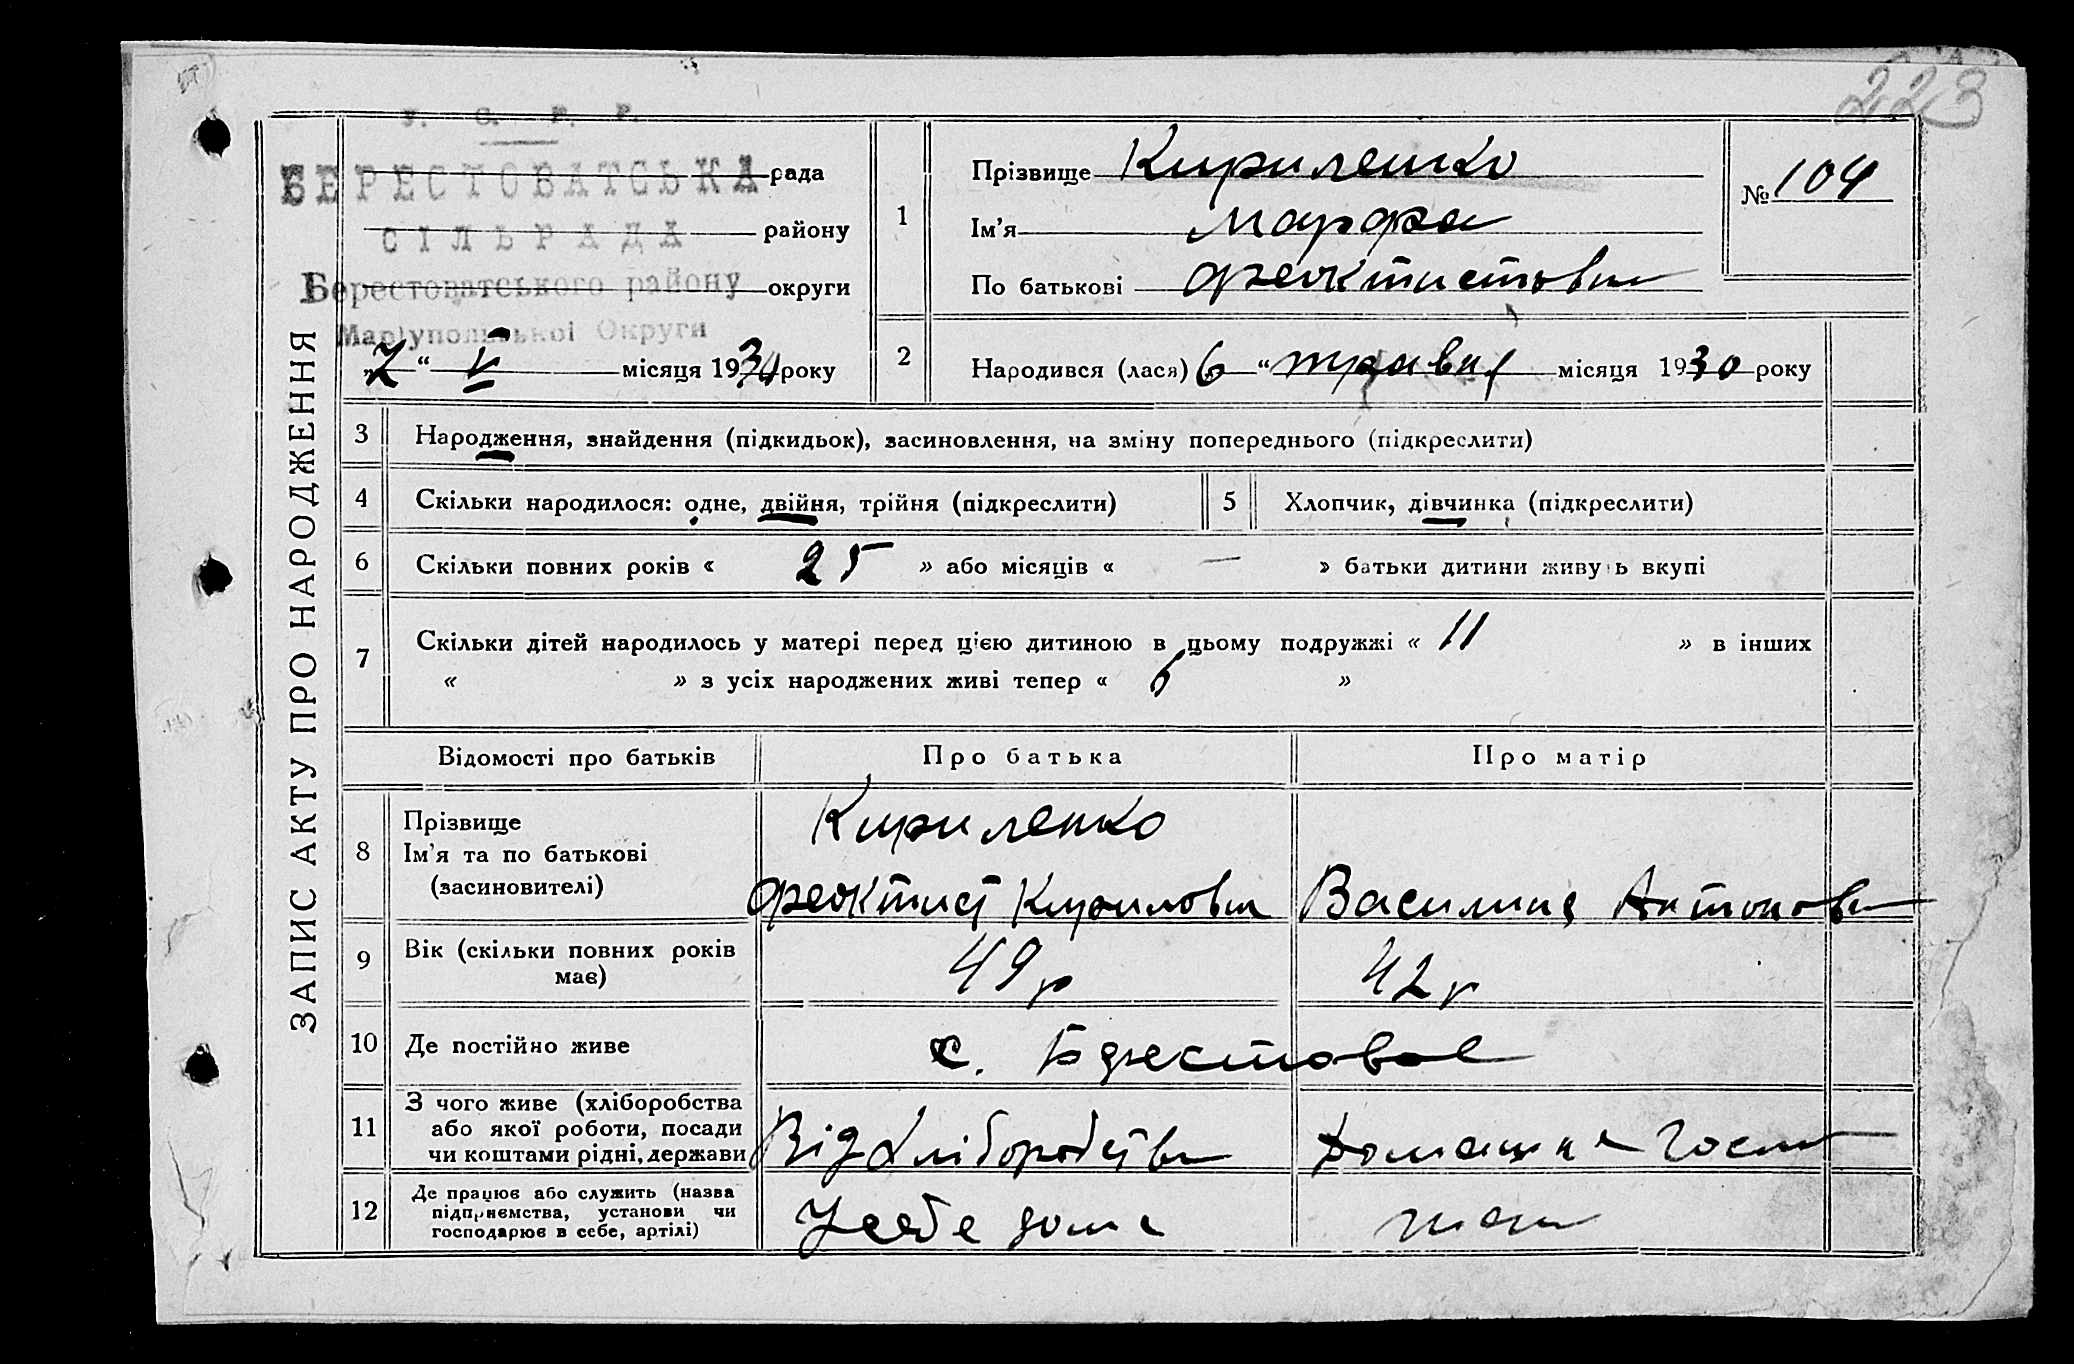 223
У. С. Р. Р.
БЕРЕСТОВАТСЬКА рада
СІЛЬРАДА району
Берестоватського району округи
Маріупольської Округи
„7“ V місяця 1930 року
ЗАПИС АКТУ ПРО НАРОДЖЕННЯ
1 Прізвище Кириленко
Ім'я Марфа
По батькові Феоктистовна
№ 104
2 Народився (лася) „6“ травня місяця 1930 року
3 Народження, знайдення (підкидьок), засиновлення, на зміну попереднього (підкреслити)
4 Скільки народилося: одне, двійня, трійня (підкреслити) 5 Хлопчик, дівчинка (підкреслити)
6 Скільки повних років « 25 » або місяців « — » батьки дитини живуть вкупі
7 Скільки дітей народилось у матері перед цією дитиною в цьому подружжі « 11 » в інших
« » з усіх народжених живі тепер « 6 »
Відомості про батьків Про батька Про матір
8 Прізвище
Ім'я та по батькові
(засиновителі)
Кириленко
Феоктист Кирилович Василина Антоновна
9 Вік (скільки повних років
має)
49 р 42 р
10 Де постійно живе с. Берестовое
11 З чого живе (хліборобства
або якої роботи, посади
чи коштами рідні, держави
Від хліборобства Домашня госп
12 Де працює або служить (назва
підприємства, установи чи
господарює в себе, артілі)
У себе дома